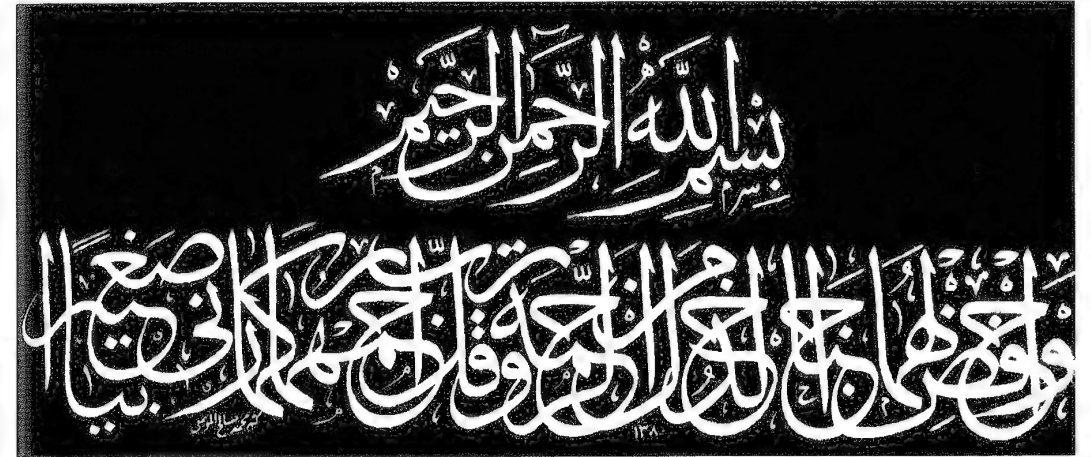 بِسْمِ اللَّهِ الرَّحْمَنِ الرَّحِيمِ
وَاخْفِضْ لَهُمَا جَنَاحَ الذُّلِّ مِنَ الرَّحْمَةِ وَقُلْ رَبِّ ارْحَمْهُمَا كَمَا رَبَّيَانِي صَغِيرًا
١٣٨٠